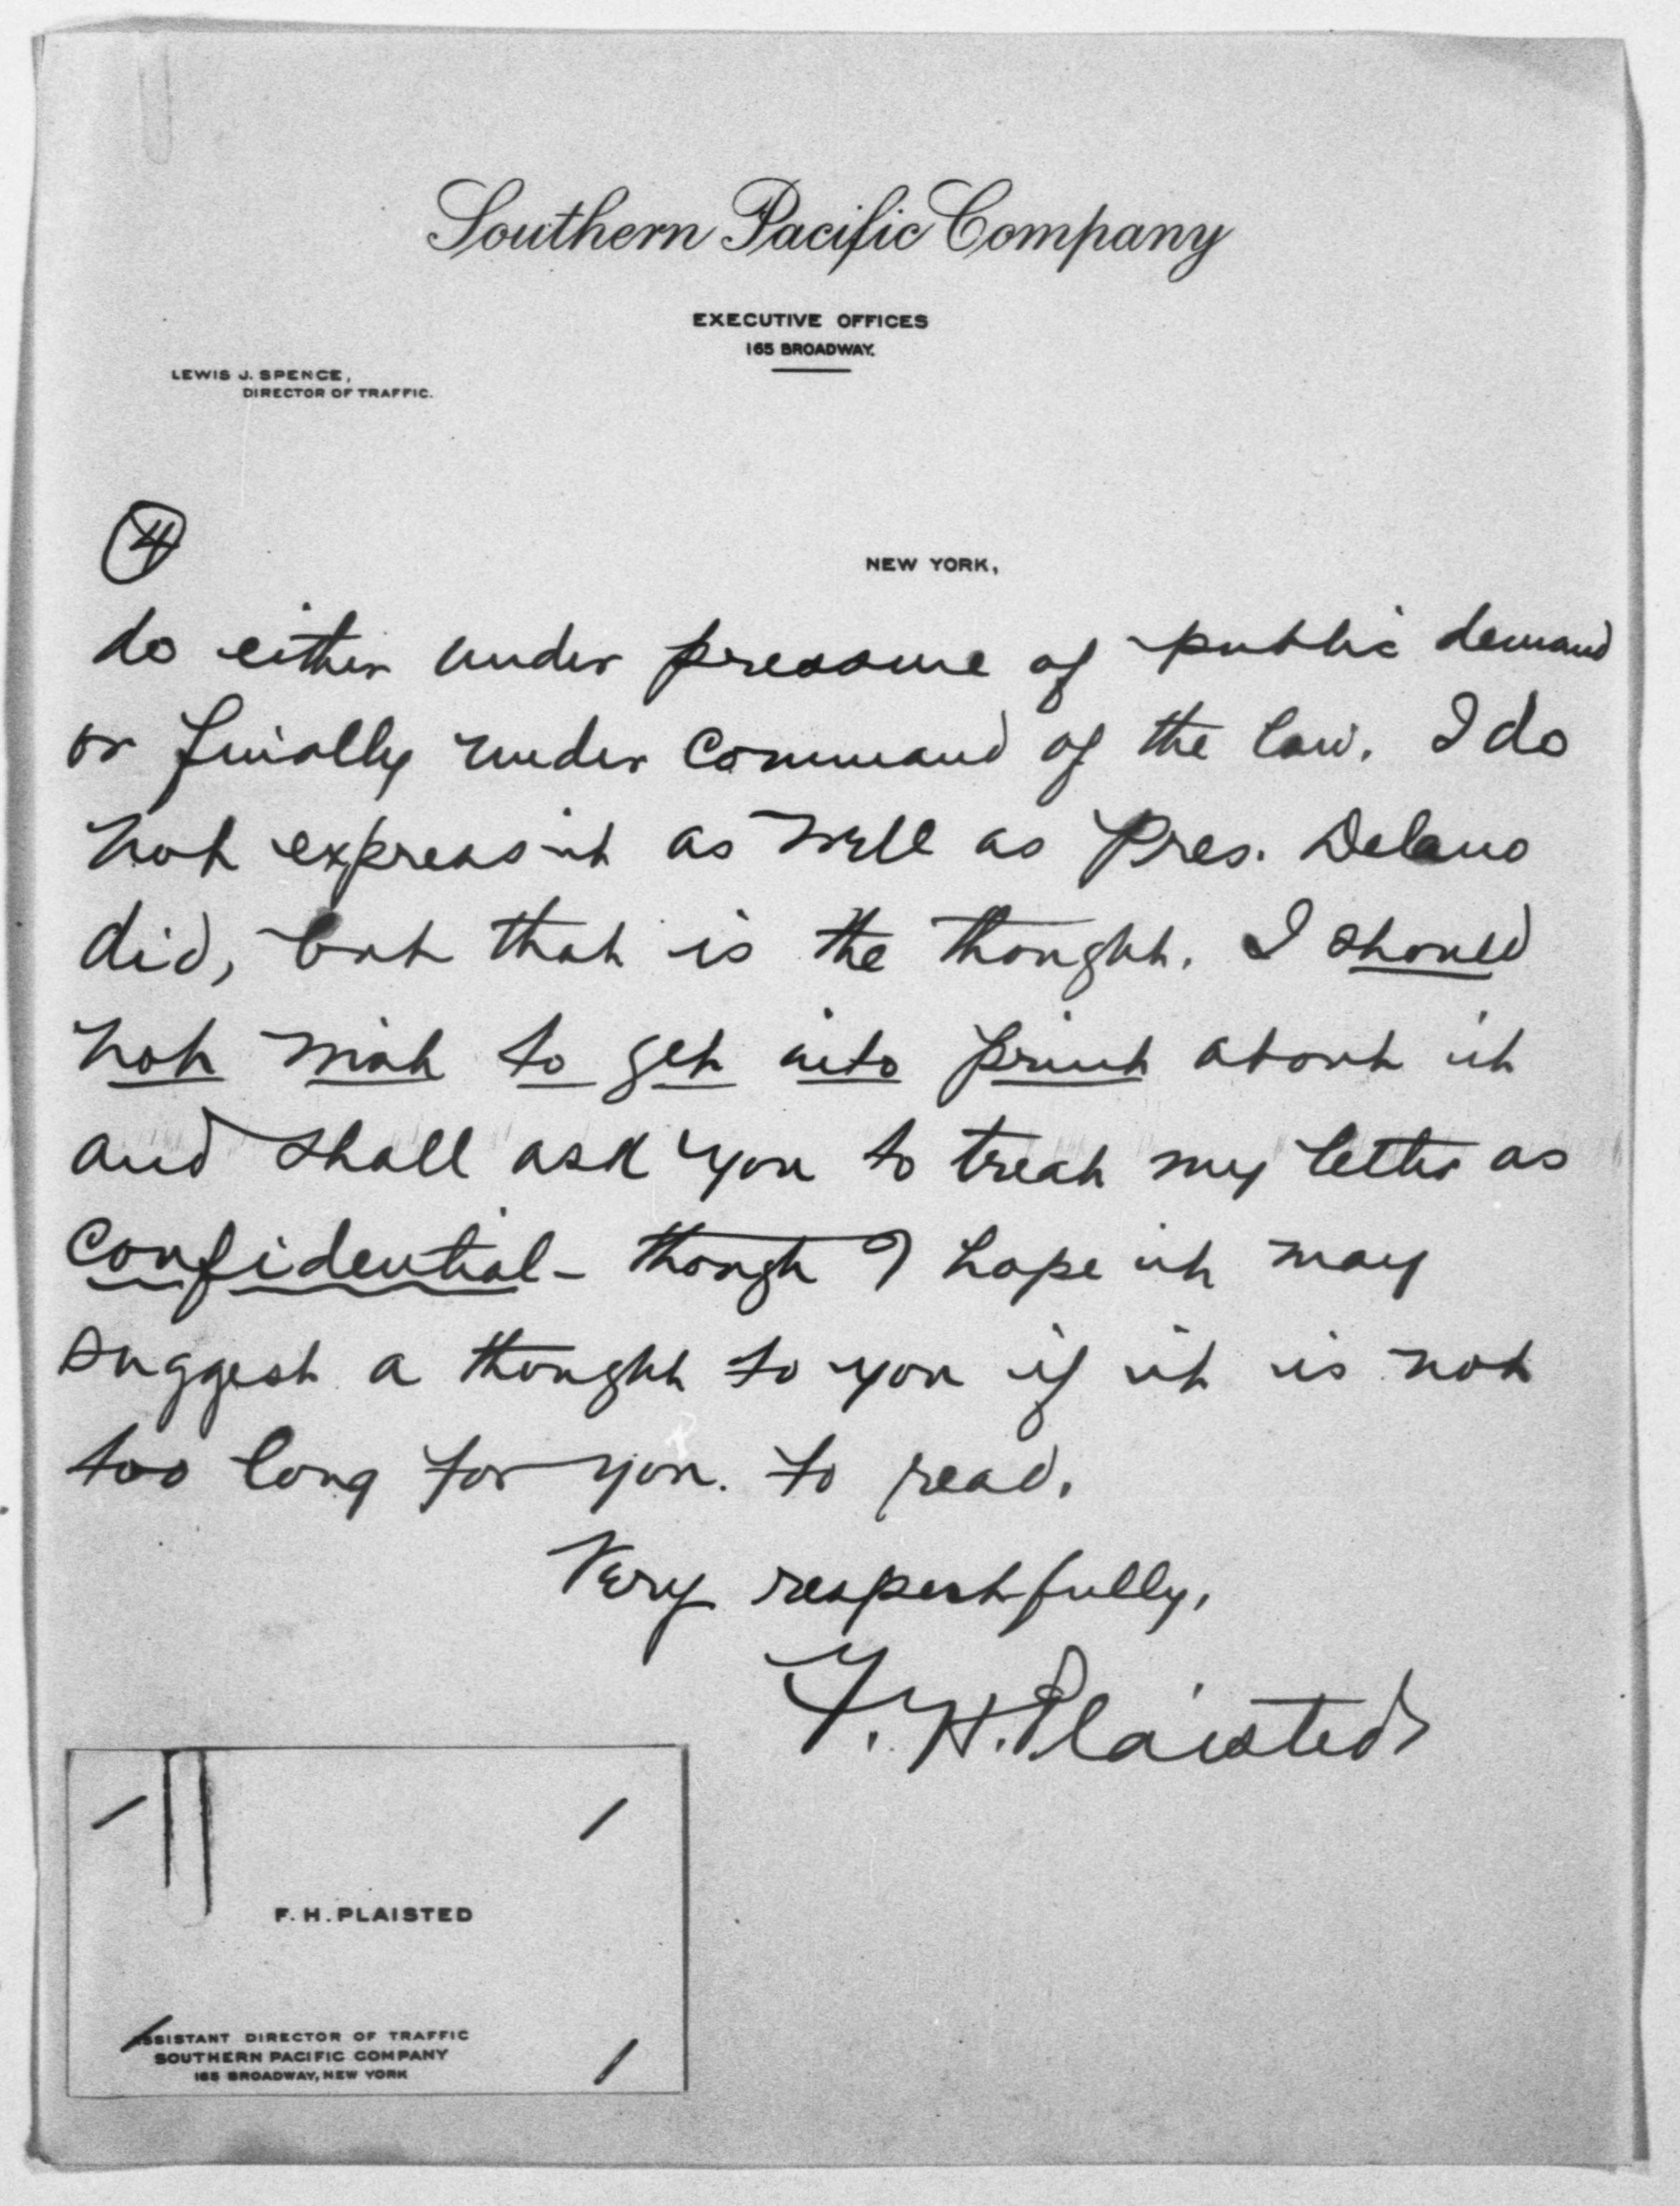 Southern Pacific Company
EXECUTIVE OFFICES
165 BROADWAY.
LEWIS J. SPENCE,
DIRECTOR OF TRAFFIC.
4
NEW YORK,
do either under pressure of public demand
or finally under command of the law. I do
not express it as well as Pres. Delano
did, but that is the thought. I should
not wish to get into print about it
and shall ask you to treat my letter as
confidential - though I hope it may
suggest a thought to you if it is not
too long for you. to read.
Very respectfully,
F. H. Plaisted
F. H. PLAISTED
ASSISTANT DIRECTOR OF TRAFFIC
SOUTHERN PACIFIC COMPANY
165 BROADWAY, NEW YORK